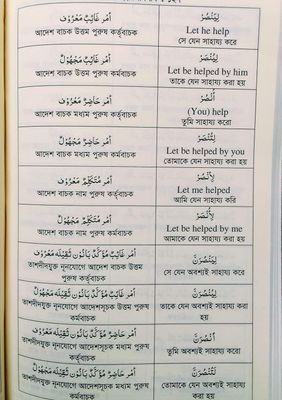 أَمْر غَائِبْ مَعْرُوْف
আদেশ বাচক উত্তম পুরুষ কর্তৃবাচক
لِيَنْصُرْ
Let he help
সে যেন সাহায্য করে
أَمْر غَائِبْ مَجْهُوْلْ
আদেশ বাচক উত্তম পুরুষ কর্মবাচক
لِيُنْصَرْ
Let be helped by him
তাকে যেন সাহায্য করা হয়
أَمْر حَاضِرْ مَعْرُوْف
আদেশ বাচক মধ্যম পুরুষ কর্তৃবাচক
أُنْصُرْ
(You) help
তুমি সাহায্য করো
أَمْر حَاضِرْ مَجْهُوْلْ
আদেশ বাচক মধ্যম পুরুষ কর্মবাচক
لِتُنْصَرْ
Let be helped by you
তোমাকে যেন সাহায্য করা হয়
أَمْر مُتَكَلِّمْ مَعْرُوْف
আদেশ বাচক নাম পুরুষ কর্তৃবাচক
لِأَنْصُرْ
Let me helped
আমি যেন সাহায্য করি
أَمْر مُتَكَلِّمْ مَجْهُوْلْ
আদেশ বাচক নাম পুরুষ কর্মবাচক
لِأُنْصَرْ
Let be helped by me
আমাকে যেন সাহায্য করা হয়
أَمْر غَائِبْ مُؤَكَّدْ بَانُوْن ثَقِيْلَه مَعْرُوْف
তাশদীদযুক্ত নূনযোগে আদেশ বাচক উত্তম
পুরুষ কর্তৃবাচক
لِيَنْصُرَنَّ
সে যেন অবশ্যই সাহায্য করে
أَمْر غَائِبْ مُؤَكَّدْ بَانُوْن ثَقِيْلَه مَجْهُوْلْ
তাশদীদযুক্ত নূনযোগে আদেশসূচক উত্তম পুরুষ
কর্মবাচক
لِيُنْصَرَنَّ
তাকে যেন অবশ্যই সাহায্য করা
হয়
أَمْر حَاضِرْ مُؤَكَّدْ بَانُوْن ثَقِيْلَه مَعْرُوْف
তাশদীদযুক্ত নূনযোগে আদেশসূচক মধ্যম পুরুষ
কর্তৃবাচক
أُنْصُرَنَّ
তুমি অবশ্যই সাহায্য করো
أَمْر حَاضِرْ مُؤَكَّدْ بَانُوْن ثَقِيْلَه مَجْهُوْلْ
তাশদীদযুক্ত নূনযোগে আদেশসূচক মধ্যম পুরুষ
কর্মবাচক
لِتُنْصَرَنَّ
তোমাকে যেন অবশ্যই সাহায্য করা
হয়